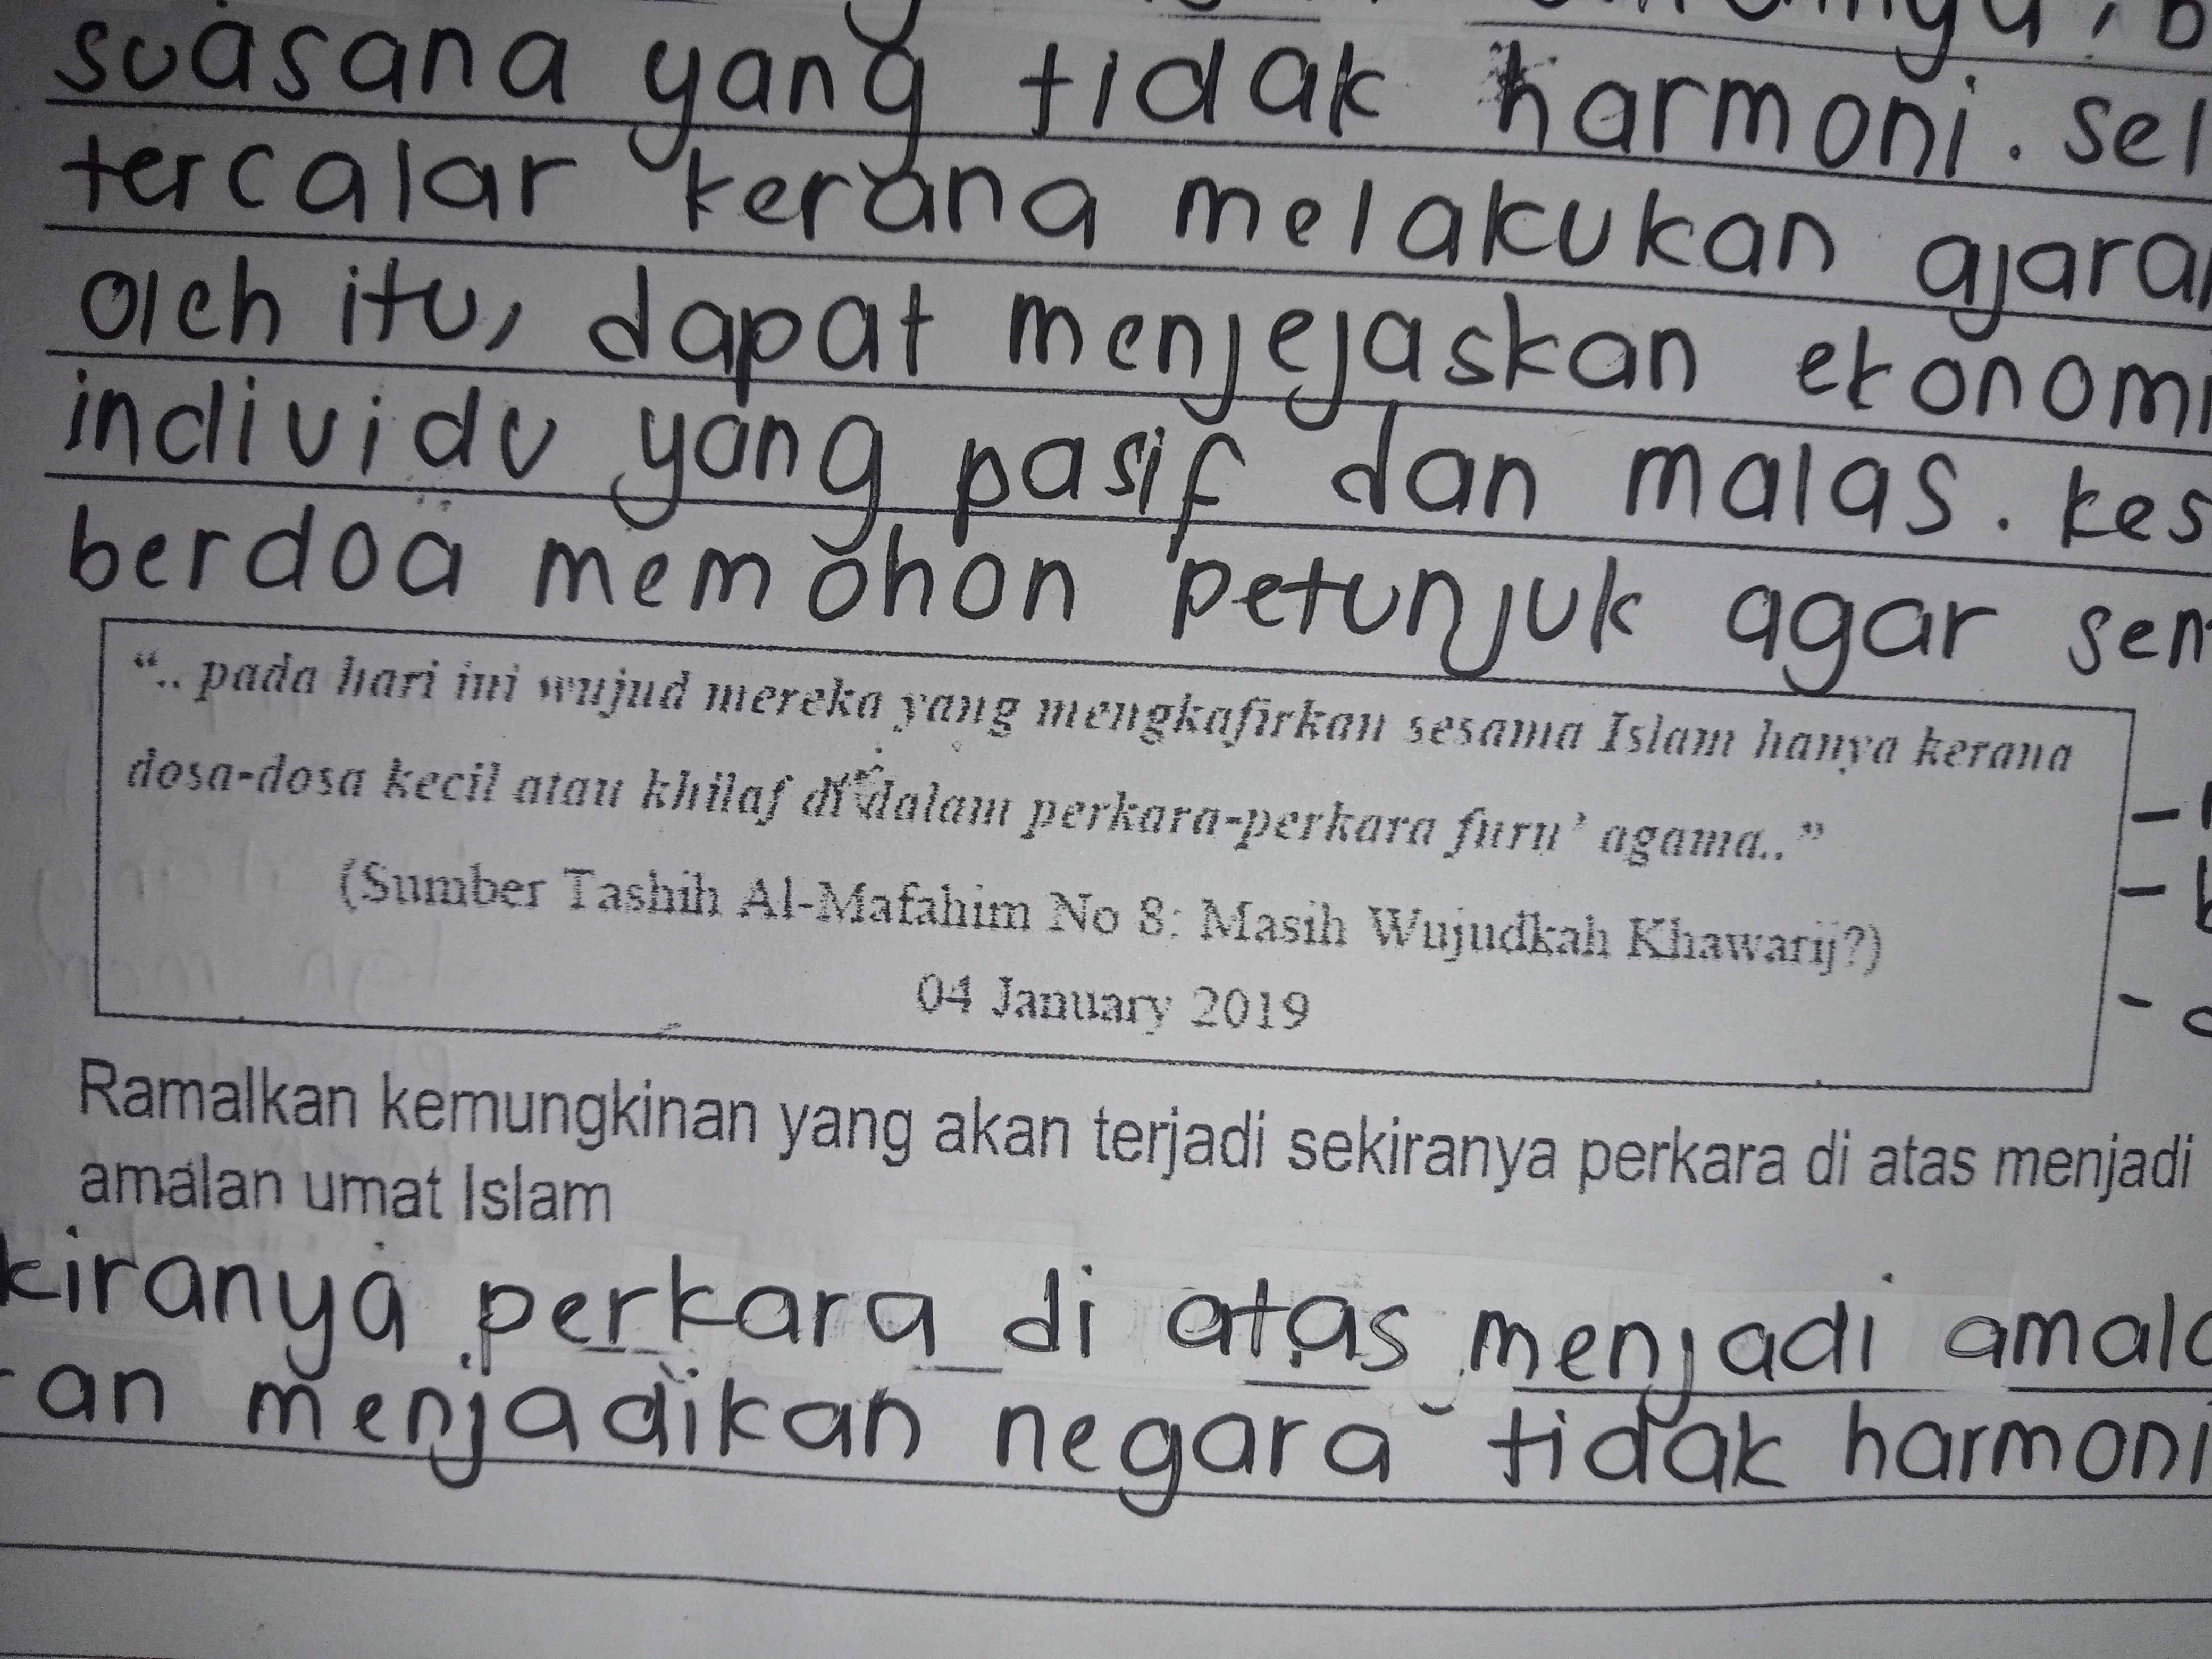 suasana yang tidak harmoni. sel
tercalar kerana melakukan ajaran
oleh itu, dapat menjejaskan ekonomi
individu yang pasif dan malas. kes
berdoa memohon petunjuk agar sen
“.. pada hari ini wujud mereka yang mengkafirkan sesama Islam hanya kerana
dosa-dosa kecil atau khilaf di dalam perkara-perkara furu’ agama..”
(Sumber Tashih Al-Mafahim No 8: Masih Wujudkah Khawarij?)
04 January 2019
Ramalkan kemungkinan yang akan terjadi sekiranya perkara di atas menjadi
amalan umat Islam
kiranya perkara di atas menjadi amala
an menjadikan negara tidak harmoni